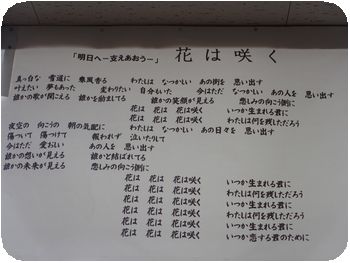 「明日へ－支えあおう－」 花は咲く
真っ白な 雪道に 春風香る わたしは なつかしい あの街を 思い出す
叶えたい 夢もあった 変わりたい 自分もいた 今はただ なつかしい あの人を 思い出す
誰かの歌が聞こえる 誰かを励ましてる 誰かの笑顔が見える 悲しみの向こう側に
花は 花は 花は咲く いつか生まれる君に
花は 花は 花は咲く わたしは何を残しただろう
夜空の 向こうの 朝の気配に わたしは なつかしい あの日々を 思い出す
傷ついて 傷つけて 報われず 泣いたりして
今はただ 愛おしい あの人を 思い出す
誰かの想いが見える 誰かと結ばれてる
誰かの未来が見える 悲しみの向こう側に
花は 花は 花は咲く いつか生まれる君に
花は 花は 花は咲く わたしは何を残しただろう
花は 花は 花は咲く いつか生まれる君に
花は 花は 花は咲く わたしは何を残しただろう
花は 花は 花は咲く いつか生まれる君に
花は 花は 花は咲く いつか恋する君のために